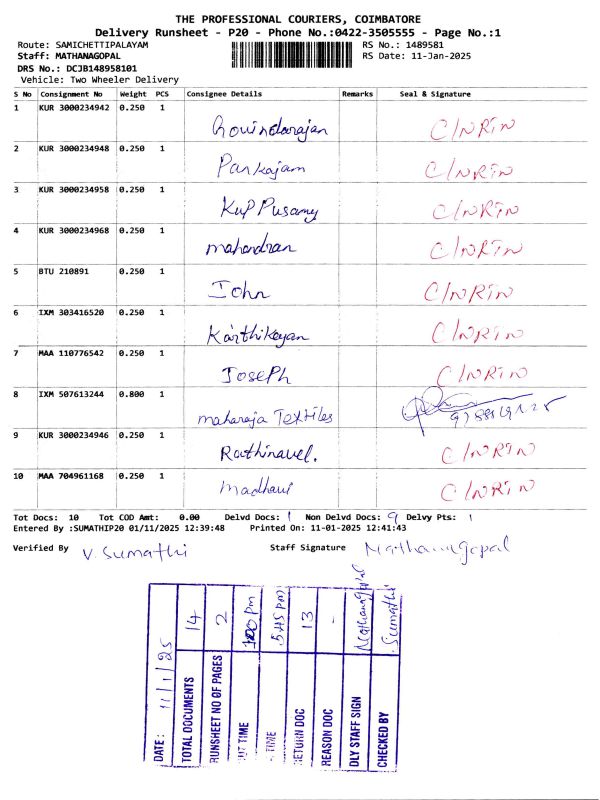 THE PROFESSIONAL COURIERS, COIMBATORE
Delivery Runsheet - P20 - Phone No.:0422-3505555 - Page No.:1
Route: SAMICHETTIPALAYAM RS No.: 1489581
Staff: MATHANAGOPAL RS Date: 11-Jan-2025
DRS No.: DCJB148958101
Vehicle: Two Wheeler Delivery
S No Consignment No Weight PCS Consignee Details Remarks Seal & Signature
1 KUR 3000234942 0.250 1 Govindarajan C/NRIN
2 KUR 3000234948 0.250 1 Pankajam C/NRIN
3 KUR 3000234958 0.250 1 KupPusamy C/NRIN
4 KUR 3000234968 0.250 1 mahendran C/NRIN
5 BTU 210891 0.250 1 John C/NRIN
6 IXM 303416520 0.250 1 Karthikeyan C/NRIN
7 MAA 110776542 0.250 1 JosePh C/NRIN
8 IXM 507613244 0.800 1 maharaja Textiles
9 KUR 3000234946 0.250 1 Rathinavel. C/NRIN
10 MAA 704961168 0.250 1 madhavi C/NRIN
Tot Docs: 10 Tot COD Amt: 0.00 Delvd Docs: 1 Non Delvd Docs: 9 Delvy Pts: 1
Entered By :SUMATHIP20 01/11/2025 12:39:48 Printed On: 11-01-2025 12:41:43
Verified By V. Sumathi Staff Signature Mathanagopal
DATE: 11/1/25
TOTAL DOCUMENTS 14
RUNSHEET NO OF PAGES 2
UT TIME pm
TIME 5.45 pm
RETURN DOC 13
REASON DOC -
DLY STAFF SIGN Mathanagopal
CHECKED BY Sumathi